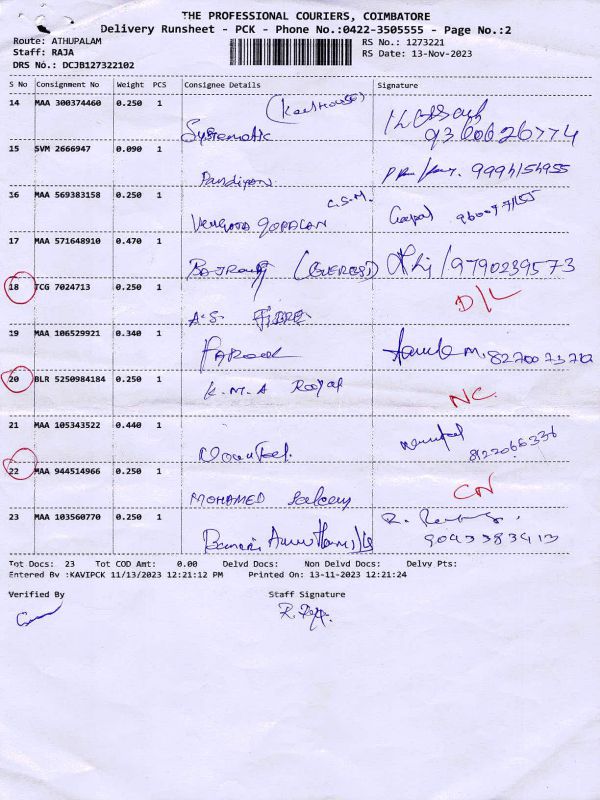 THE PROFESSIONAL COURIERS, COIMBATORE
Delivery Runsheet - PCK - Phone No.:0422-3505555 - Page No.:2
Route: ATHUPALAM
RS No.: 1273221
Staff: RAJA
RS Date: 13-Nov-2023
DRS No.: DCJB127322102
S No Consignment No Weight PCS Consignee Details Signature
14 MAA 300374460 0.250 1
Systematic 9360626774
15 SVM 2666947 0.090 1
Pandiyan
16 MAA 569383158 0.250 1 C.S.M.
VENUGOPALAN Gopal
17 MAA 571648910 0.470 1
9790239573
18 TCG 7024713 0.250 1 D/L
A.S. FIBRE
19 MAA 106529921 0.340 1
FAROOK
20 BLR 5250984184 0.250 1 K.M.A Royal NC
21 MAA 105343522 0.440 1
8122066336
22 MAA 944514966 0.250 1 CN
MOHAMED
23 MAA 103560770 0.250 1
9043383413
Tot Docs: 23 Tot COD Amt: 0.00 Delvd Docs: Non Delvd Docs: Delvy Pts:
Entered By :KAVIPCK 11/13/2023 12:21:12 PM Printed On: 13-11-2023 12:21:24
Verified By Staff Signature
R. Raja